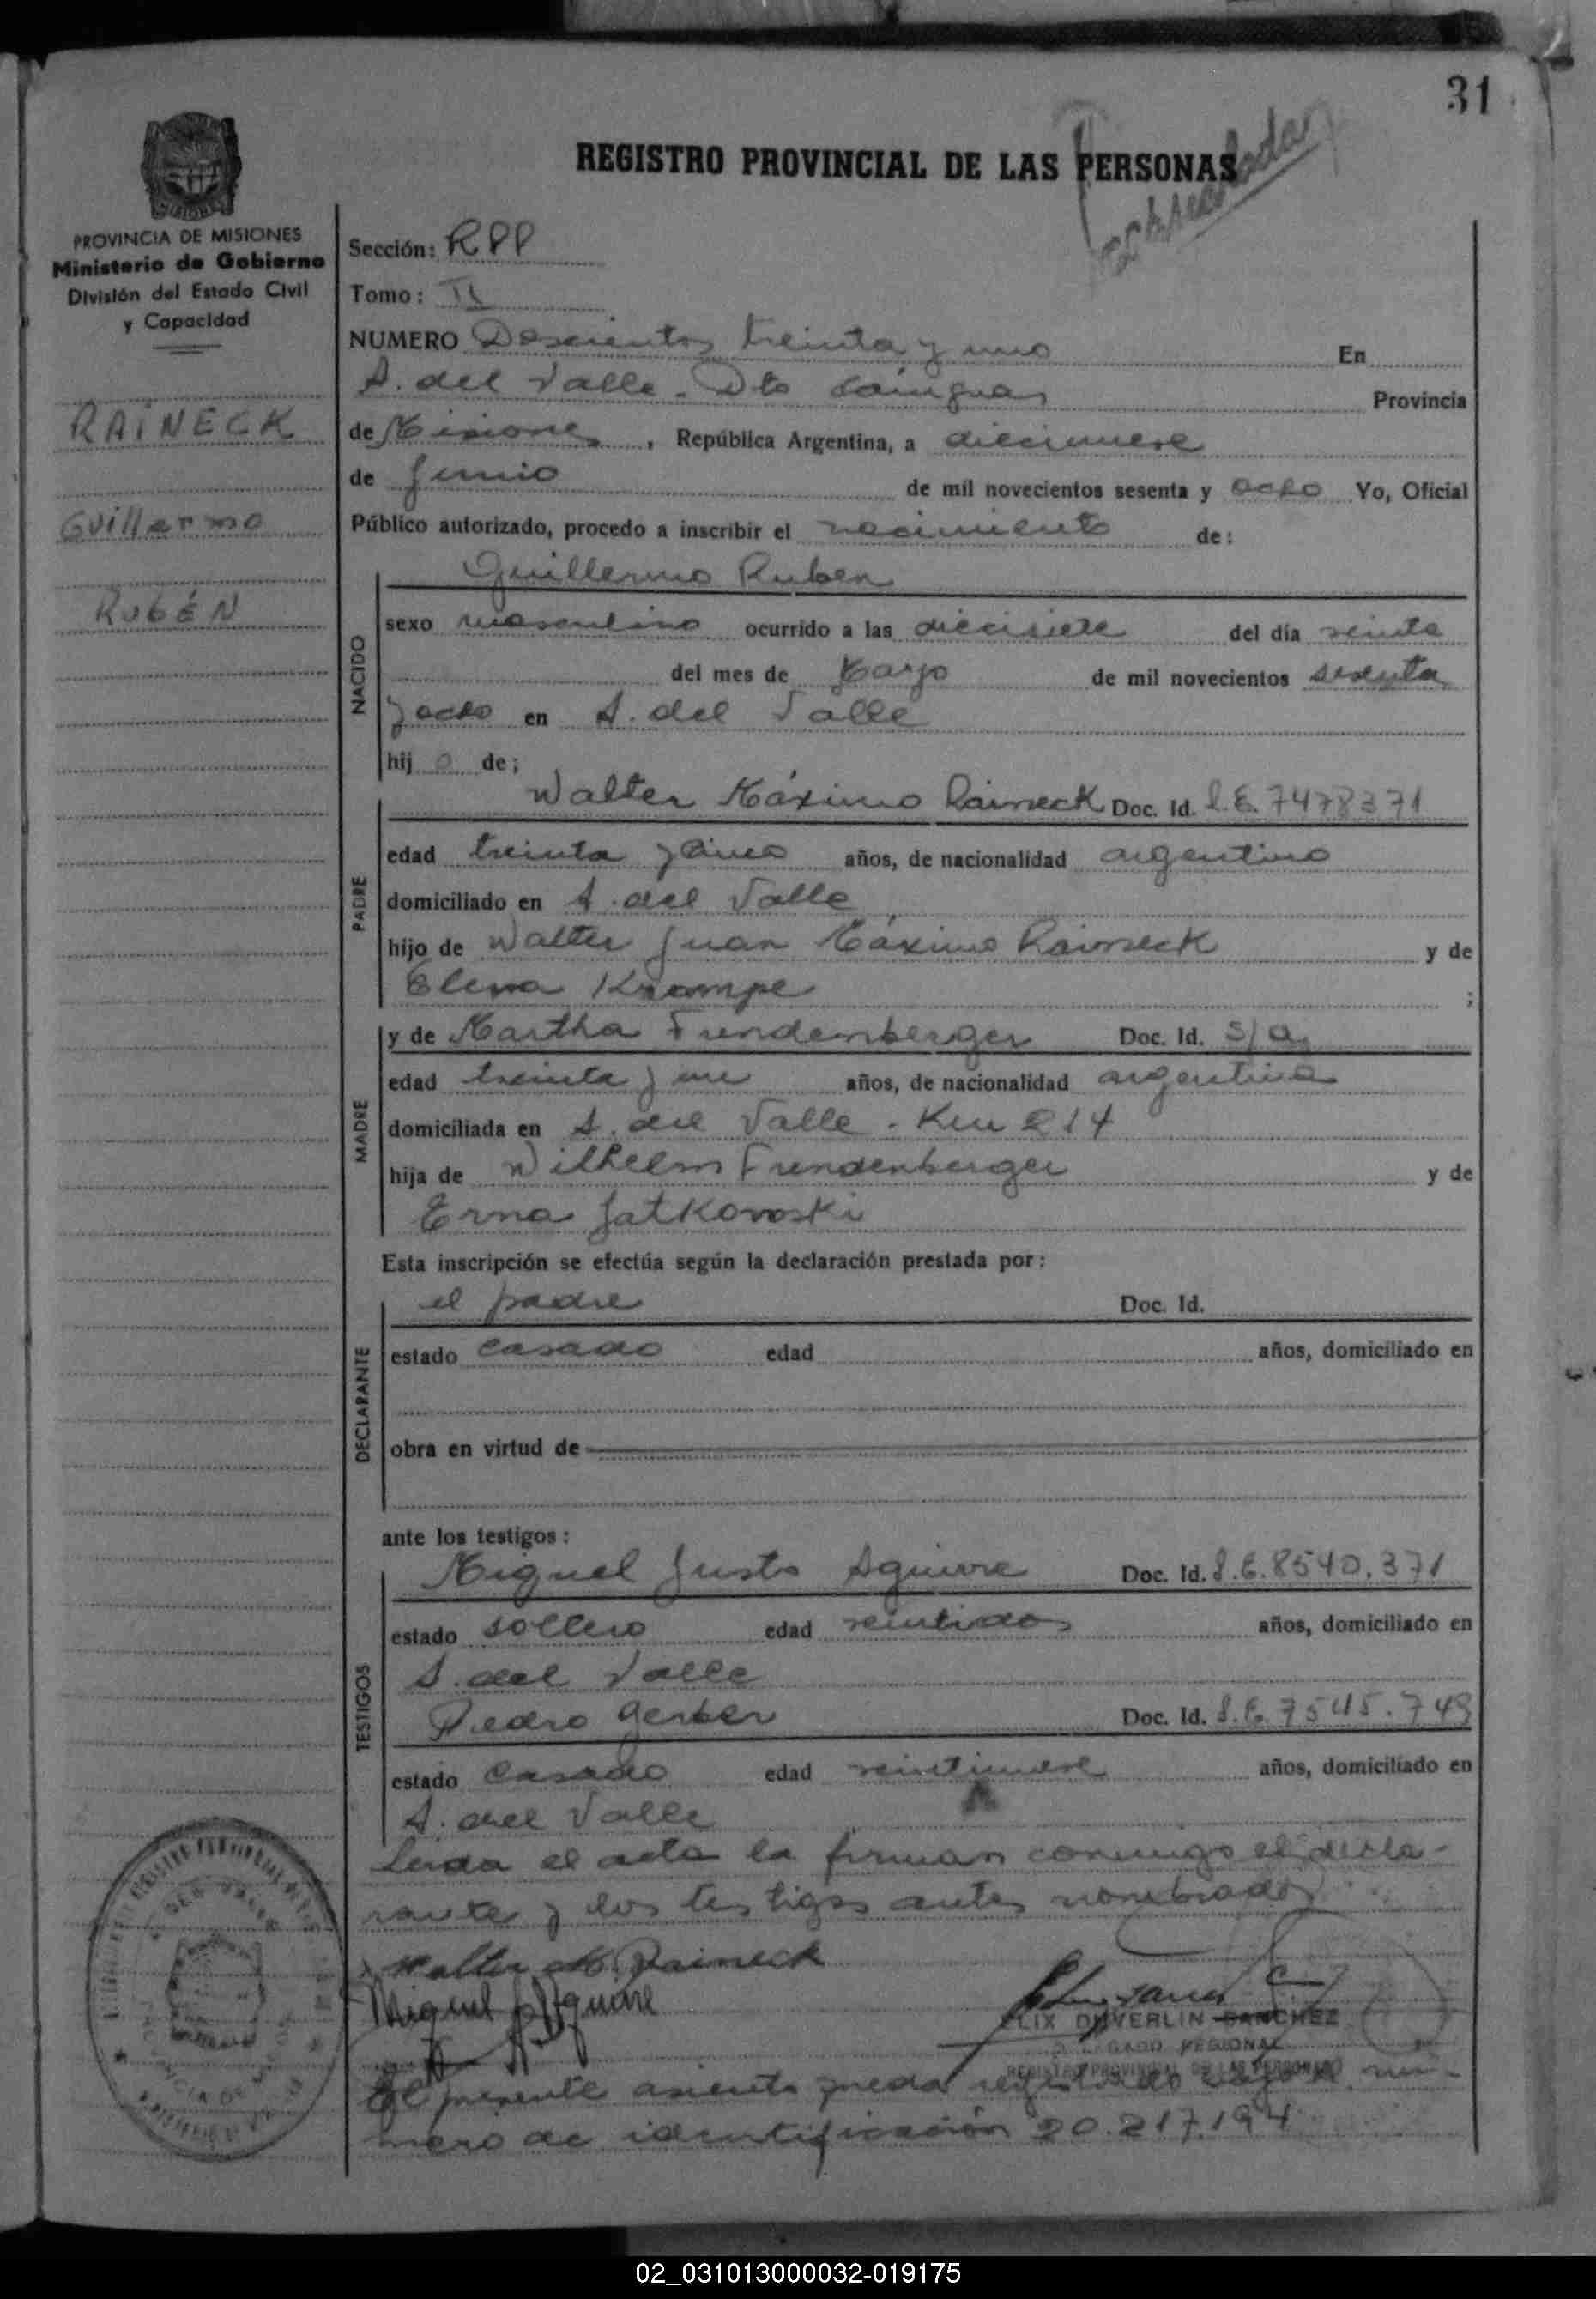 31
REGISTRO PROVINCIAL DE LAS PERSONAS
PROVINCIA DE MISIONES
Ministerio de Gobierno
División del Estado Civil
y Capacidad
RAINECK
Guillermo
RUBÉN
Sección: RPP
Tomo: II
NUMERO Doscientos treinta y uno En
A. del Valle - Dto Cainguas Provincia
de Misiones, República Argentina, a diecinueve
de Junio de mil novecientos sesenta y ocho Yo, Oficial
Público autorizado, procedo a inscribir el nacimiento de:
Guillermo Ruben
NACIDO
sexo masculino ocurrido a las diecisiete del día veinte
del mes de Marzo de mil novecientos sesenta
y ocho en A. del Valle
hij o de;
Walter Máximo Raineck Doc. Id. L.E. 7478371
PADRE
edad treinta y cinco años, de nacionalidad argentino
domiciliado en A. del Valle
hijo de Walter Juan Máximo Raineck y de
Elena Krampe ;
y de Martha Frendenberger Doc. Id. S/a
MADRE
edad treinta y un años, de nacionalidad argentina
domiciliada en A. del Valle - Km 214
hija de Wilhelm Frendenberger y de
Erna Jatkowski
Esta inscripción se efectúa según la declaración prestada por:
el padre Doc. Id.
DECLARANTE
estado casado edad años, domiciliado en
obra en virtud de
ante los testigos:
Miguel Justo Aguirre Doc. Id. L.E. 8540.371
TESTIGOS
estado soltero edad veintidos años, domiciliado en
A. del Valle
Pedro Gerber Doc. Id. L.E. 7545.749
estado casado edad veintinueve años, domiciliado en
A. del Valle
Leida el acta la firman conmigo el decla-
rante y los testigos antes nombrados
Walter M. Raineck
Miguel J. Aguirre
FELIX DUVERLIN SANCHEZ
DELEGADO REGIONAL
REGISTRO PROVINCIAL DE LAS PERSONAS
El presente asiento queda registrado bajo el nú-
mero de identificación 20.217.194
02_031013000032-019175